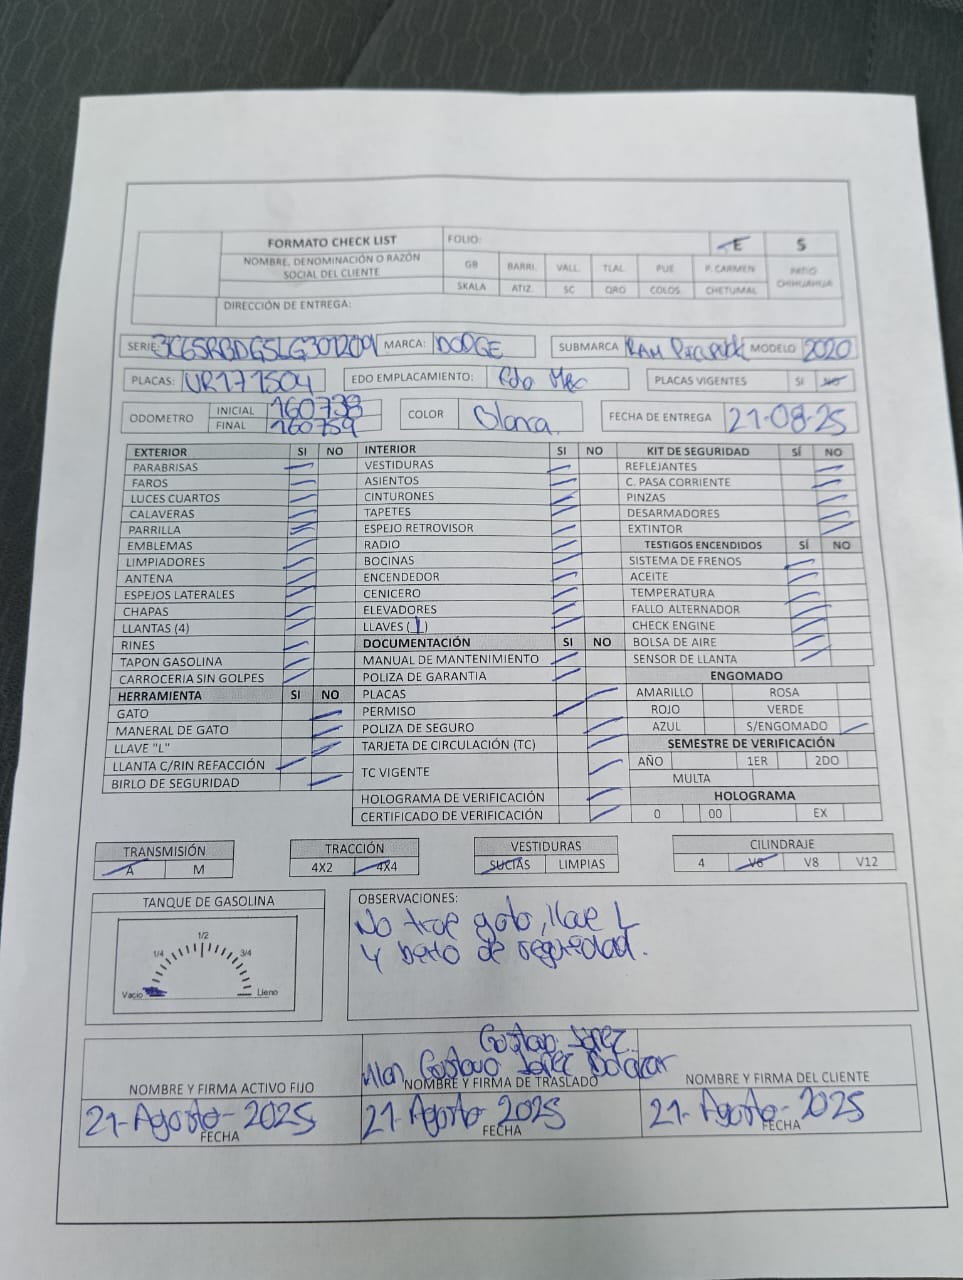 FORMATO CHECK LIST FOLIO: E S
NOMBRE, DENOMINACIÓN O RAZÓN SOCIAL DEL CLIENTE
GB BARRI. VALL. TLAL. PUE P. CARMEN PATIO CHIHUAHUA
SKALA ATIZ. SC QRO COLOS. CHETUMAL
DIRECCIÓN DE ENTREGA:
SERIE: MARCA: DODGE SUBMARCA RAM MODELO 2020
PLACAS: UR171504 EDO EMPLACAMIENTO: Edo Mex PLACAS VIGENTES SI NO
ODOMETRO INICIAL 160738 COLOR Blanca. FECHA DE ENTREGA 21-08-25
FINAL 160759
EXTERIOR SI NO INTERIOR SI NO KIT DE SEGURIDAD SÍ NO
PARABRISAS VESTIDURAS REFLEJANTES
FAROS ASIENTOS C. PASA CORRIENTE
LUCES CUARTOS CINTURONES PINZAS
CALAVERAS TAPETES DESARMADORES
PARRILLA ESPEJO RETROVISOR EXTINTOR
EMBLEMAS RADIO TESTIGOS ENCENDIDOS SÍ NO
LIMPIADORES BOCINAS SISTEMA DE FRENOS
ANTENA ENCENDEDOR ACEITE
ESPEJOS LATERALES CENICERO TEMPERATURA
CHAPAS ELEVADORES FALLO ALTERNADOR
LLANTAS (4) LLAVES (1) CHECK ENGINE
RINES DOCUMENTACIÓN SI NO BOLSA DE AIRE
TAPON GASOLINA MANUAL DE MANTENIMIENTO SENSOR DE LLANTA
CARROCERIA SIN GOLPES POLIZA DE GARANTIA ENGOMADO
HERRAMIENTA SI NO PLACAS AMARILLO ROSA
GATO PERMISO ROJO VERDE
MANERAL DE GATO POLIZA DE SEGURO AZUL S/ENGOMADO
LLAVE "L" TARJETA DE CIRCULACIÓN (TC) SEMESTRE DE VERIFICACIÓN
LLANTA C/RIN REFACCIÓN TC VIGENTE AÑO 1ER 2DO
BIRLO DE SEGURIDAD MULTA
HOLOGRAMA DE VERIFICACIÓN HOLOGRAMA
CERTIFICADO DE VERIFICACIÓN 0 00 EX
TRANSMISIÓN TRACCIÓN VESTIDURAS CILINDRAJE
A M 4X2 4X4 SUCIAS LIMPIAS 4 V6 V8 V12
TANQUE DE GASOLINA OBSERVACIONES:
No trae gato, llave L
y de seguredad.
1/2
1/4 3/4
Vacio Lleno
Gustavo
Gustavo
NOMBRE Y FIRMA ACTIVO FIJO NOMBRE Y FIRMA DE TRASLADO NOMBRE Y FIRMA DEL CLIENTE
21-Agosto-2025 21 Agosto 2025 21-Agosto-2025
FECHA FECHA FECHA